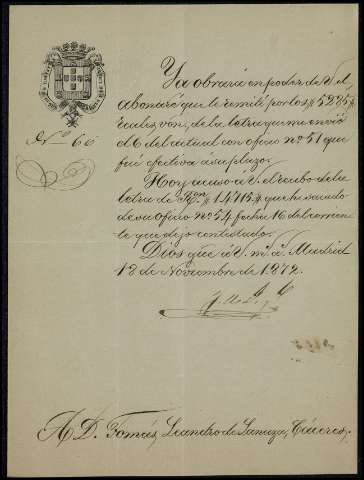 Nº 66
Ya obrará en poder de V. el
abonaré que le remití por los # 5285 #
reales von, de la letra que me envió
el 6 del actual con oficio nº 51 que
fué efectiva a su plazo.
Hoy acuso a V. el recibo de la
letra de Rvon # 14715 # que he sacado
de su oficio nº 54 fecha 16 del corrien
te que dejo contestado.
Dios gue á V. m. a. Madrid
18 de Noviembre de 1872.
A D. Tomás Leandro de Sanuza, Cáceres.